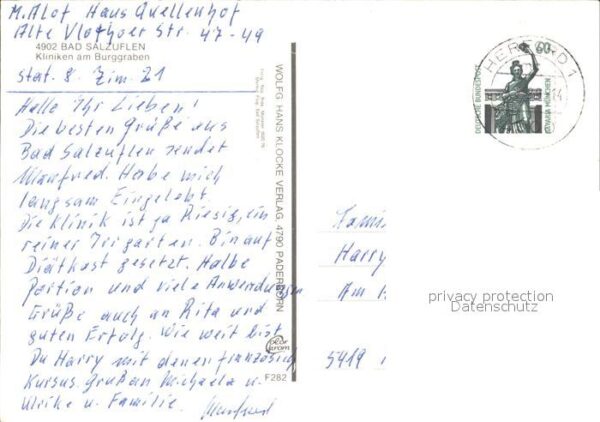 M. Alof Haus Quellenhof
Alte Vlothoer Str. 47-49
4902 BAD SALZUFLEN
Kliniken am Burggraben
Stat. 8. Zim. 21
Hallo Ihr Lieben!
Die besten Grüße aus
Bad Salzuflen sendet
Manfred. Habe mich
langsam Eingelebt.
Die Klinik ist ja Riesig, ein
reiner Irrgarten. Bin auf
Diätkost gesetzt. Halbe
Portion und viele Anwendungen
Grüße auch an Rita und
guten Erfolg. Wie weit bist
Du Harry mit denen französisch
Kursus. Grüßen Michaela u.
Ulrike u. Familie. Manfred
WOLFG. HANS KLOCKE VERLAG, 4790 PADERBORN
F282
color
krom
HERFORD 1
60
DEUTSCHE BUNDESPOST
BAVARIA MÜNCHEN
Fami
Harry
Am
5419
privacy protection
Datenschutz